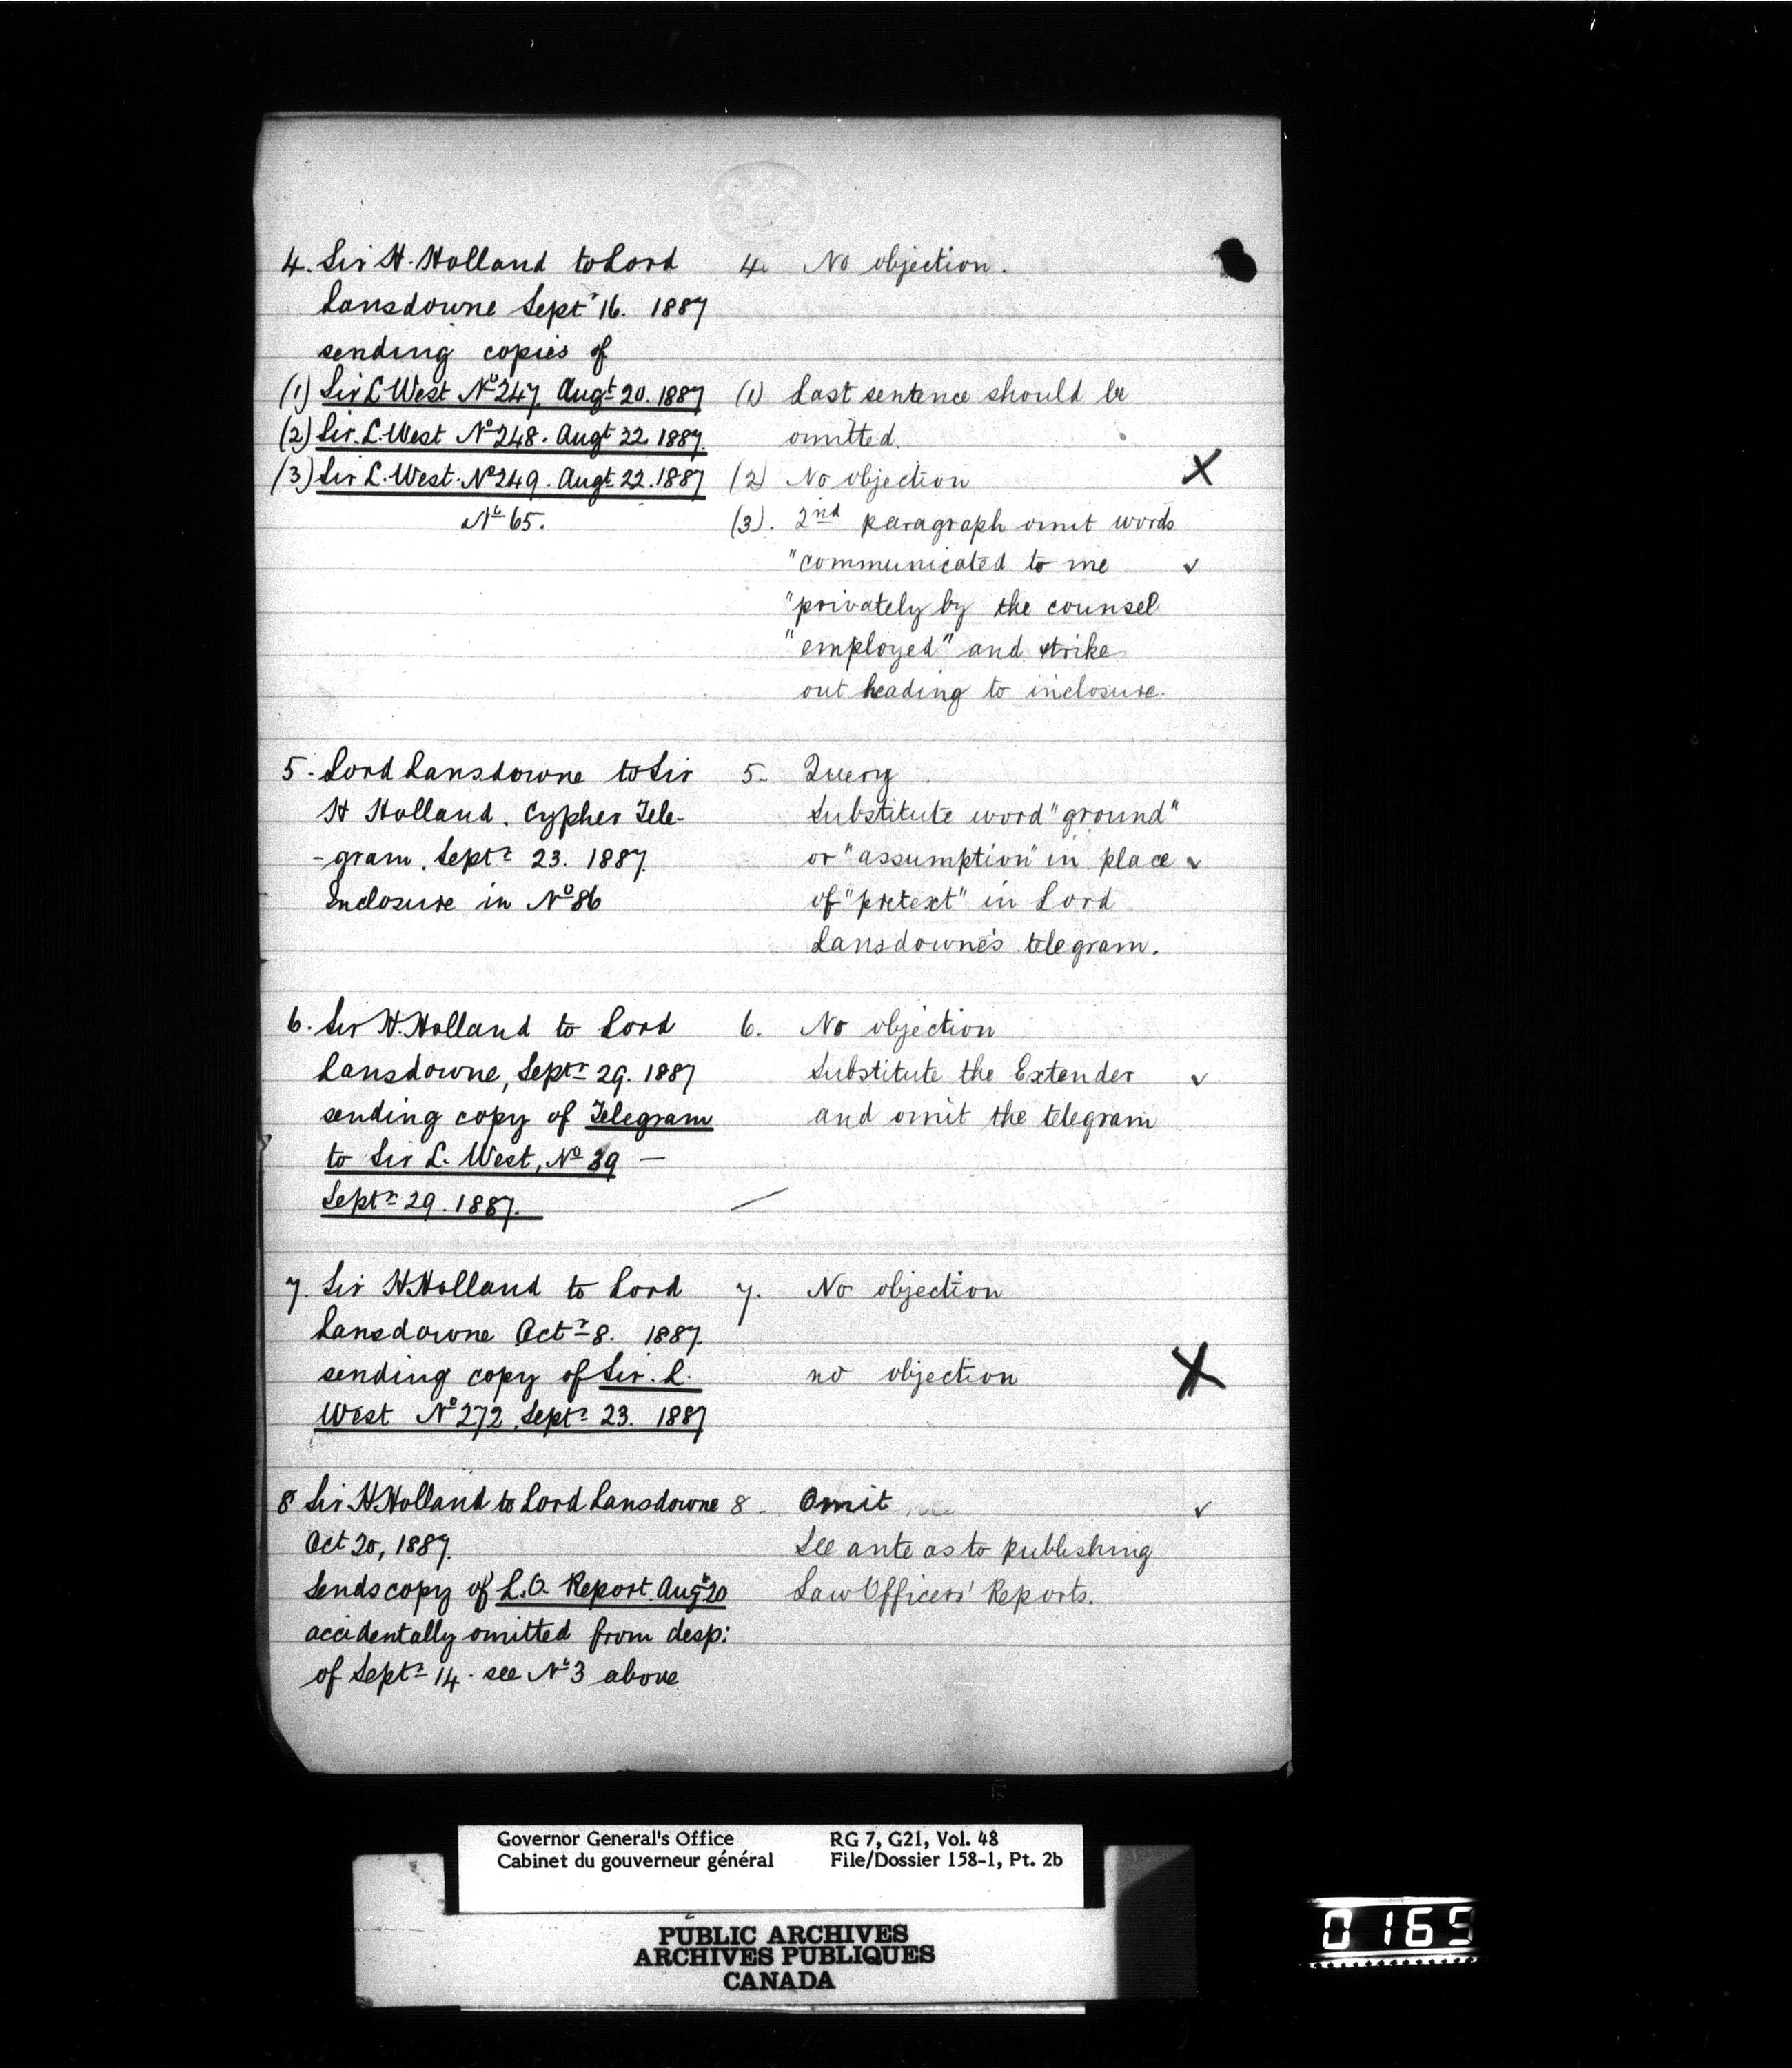 4. Sir H. Holland to Lord
Lansdowne Septr 16. 1887
sending copies of
(1) Sir L West No 247. Augt 20. 1887
(2) Sir. L. West No 248. Augt 22 1887.
(3) Sir L. West. No 249. Augt 22. 1887
No 65.
4. No objection.
(1) Last sentence should be
omitted.
(2) No objection
(3). 2nd paragraph omit words
"communicated to me
"privately by the counsel
"employed" and strike
out heading to inclosure.
5. Lord Lansdowne to Sir
H Holland. Cypher Tele-
-gram. Septr 23. 1887.
Inclosure in No 86
5. Query
Substitute word "ground"
or "assumption" in place
of "pretext" in Lord
Lansdowne's telegram.
6. Sir H. Holland to Lord
Lansdowne, Septr 29. 1887
sending copy of Telegram
to Sir L. West, No 39 —
Septr 29. 1887.
6. No objection
Substitute the Extender
and omit the telegram
7. Sir H Holland to Lord
Lansdowne Octr 8. 1887.
sending copy of Sir. L.
West No 272, Septr 23. 1887
7. No objection
no objection
8 Sir H Holland to Lord Lansdowne
Oct 20, 1887.
Sends copy of L.O. Report. Augt 20
accidentally omitted from desp:
of Septr 14. see No 3 above
8. Omit
See ante as to publishing
Law Officers' Reports.
Governor General's Office
Cabinet du gouverneur général
RG 7, G21, Vol. 48
File/Dossier 158-1, Pt. 2b
PUBLIC ARCHIVES
ARCHIVES PUBLIQUES
CANADA
0165